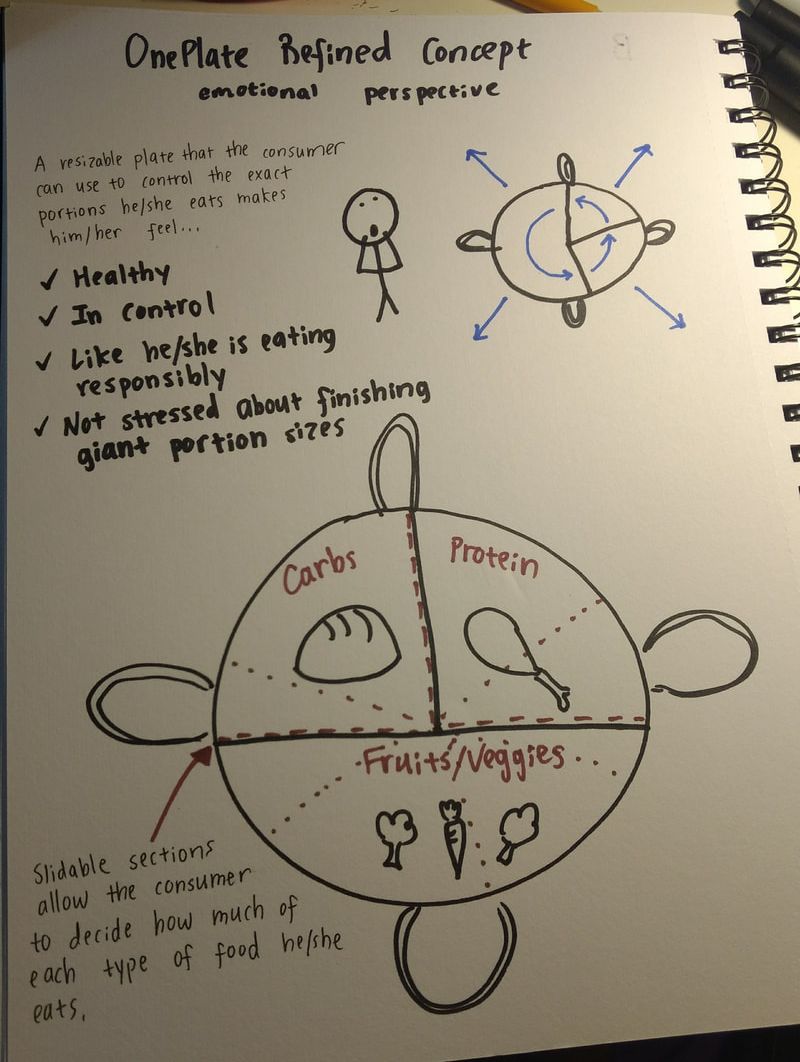 OnePlate Refined Concept
emotional perspective
A resizable plate that the consumer
can use to control the exact
portions he/she eats makes
him/her feel...
✓ Healthy
✓ In control
✓ Like he/she is eating
responsibly
✓ Not stressed about finishing
giant portion sizes
Carbs
Protein
Fruits/Veggies
Slidable sections
allow the consumer
to decide how much of
each type of food he/she
eats.